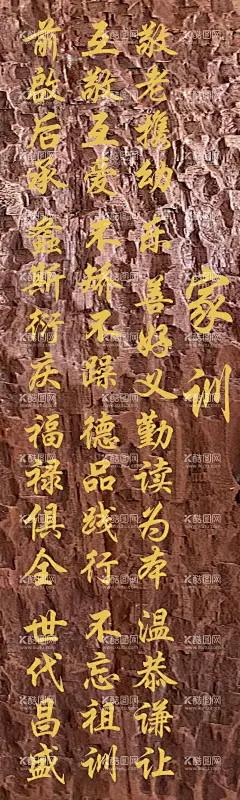 家训
敬老携幼 乐善好义 勤读为本 温恭谦让
互敬互爱 不矫不躁 德品践行 不忘祖训
前启后承 螽斯衍庆 福禄俱全 世代昌盛